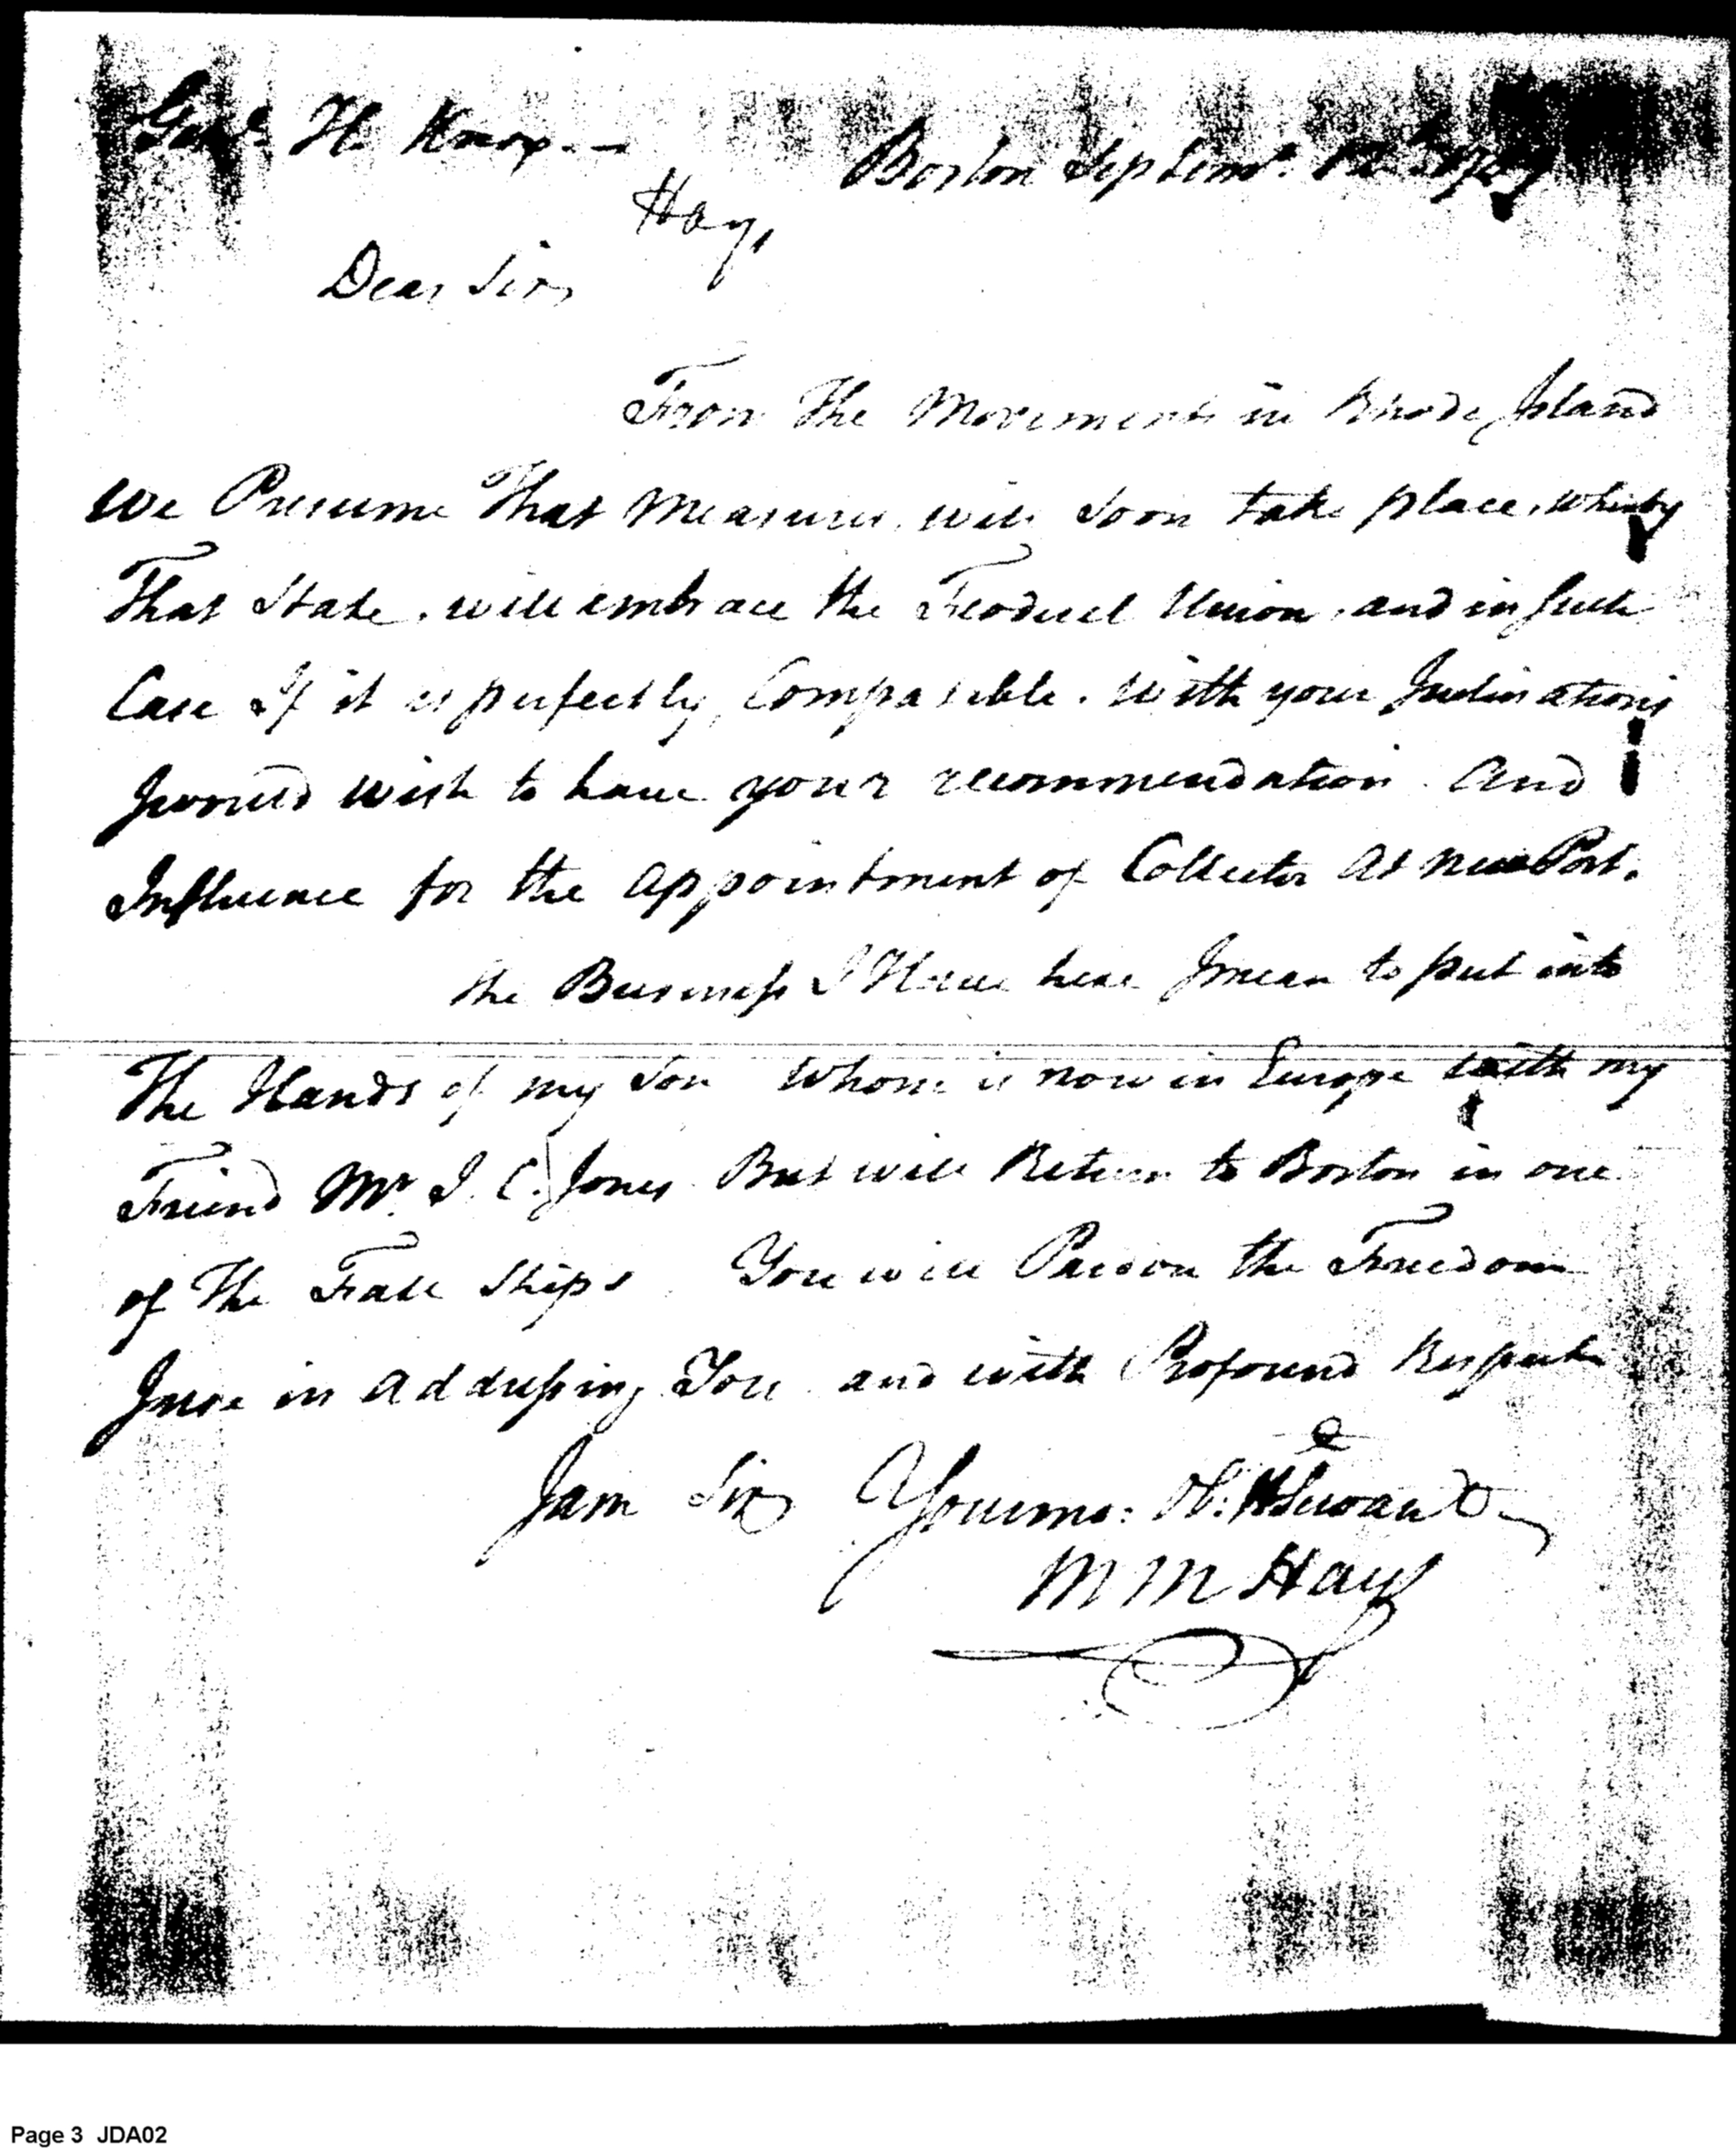 Genl. H. Knox.—
Boston Septemr.
Hays
Dear Sir,
From The Movements in Rhode Island
We Presume That Measures will Soon take place, Whereby
That State, will embrace the Feoderel Union, and in Such
Case If it is perfectly Compatible. With your Inclinations
I would wish to have your recommendation And
Influence for the Appointment of Collector At NewPort.
the Business I Have here I mean to put into
The Hands of my Son Whom is now in Europe with my
Friend Mr. I. C. Jones But will Return to Boston in one
of The Fall Ships You will Pardon the Freedom
I use in Addressing You and with Profound Respect
I am Sir Your mo: Ob: Servant
M M Hays
Page 3 JDA02